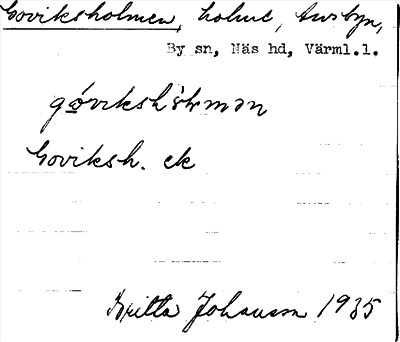 Goviksholmen, holme, Avsbyn,
By sn, Näs hd, Värml.l.
Goviksh. ek
Britta Johansson 1935